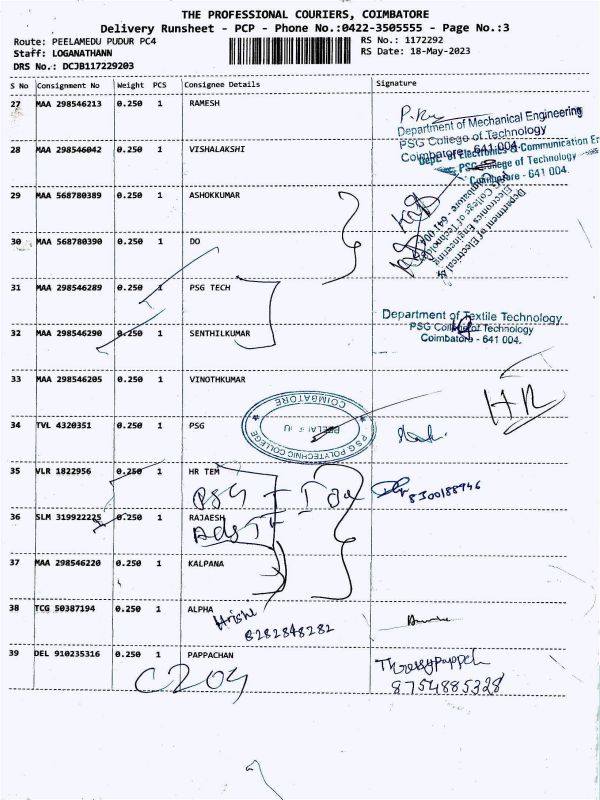 THE PROFESSIONAL COURIERS, COIMBATORE
Delivery Runsheet - PCP - Phone No.:0422-3505555 - Page No.:3
Route: PEELAMEDU PUDUR PC4 RS No.: 1172292
Staff: LOGANATHANN RS Date: 18-May-2023
DRS No.: DCJB117229203
S No Consignment No Weight PCS Consignee Details Signature
27 MAA 298546213 0.250 1 RAMESH
Department of Mechanical Engineering
PSG College of Technology
Coimbatore - 641 004.
28 MAA 298546042 0.250 1 VISHALAKSHI
Dept. of Electronics & Communication En
PSG College of Technology
Coimbatore - 641 004.
29 MAA 568780389 0.250 1 ASHOKKUMAR
Department of Electrical &
Electronics Engineering
PSG College of Technology
Coimbatore - 641 004
30 MAA 568780390 0.250 1 DO
31 MAA 298546289 0.250 1 PSG TECH
Department of Textile Technology
PSG College of Technology
Coimbatore - 641 004.
32 MAA 298546290 0.250 1 SENTHILKUMAR
33 MAA 298546205 0.250 1 VINOTHKUMAR
HR
34 TVL 4320351 0.250 1 PSG
PSG POLYTECHNIC COLLEGE
COIMBATORE
35 VLR 1822956 0.250 1 HR TEM
PSG
8300188946
36 SLM 319922225 0.250 1 RAJAESH
37 MAA 298546220 0.250 1 KALPANA
38 TCG 50387194 0.250 1 ALPHA
Hrishi
8282848282
39 DEL 910235316 0.250 1 PAPPACHAN
C204
8754885328